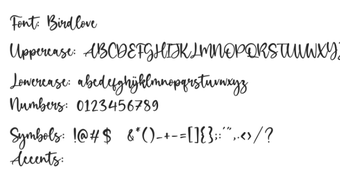 Font: Birdlove
Uppercase: ABCDEFGHIJKLMNOPQRSTUVWXYZ
Lowercase: abcdefghijklmnopqrstuvwxyz
Numbers: 0123456789
Symbols: !@#$ &*()-+-=[]{};:'",.<>/?
Accents: